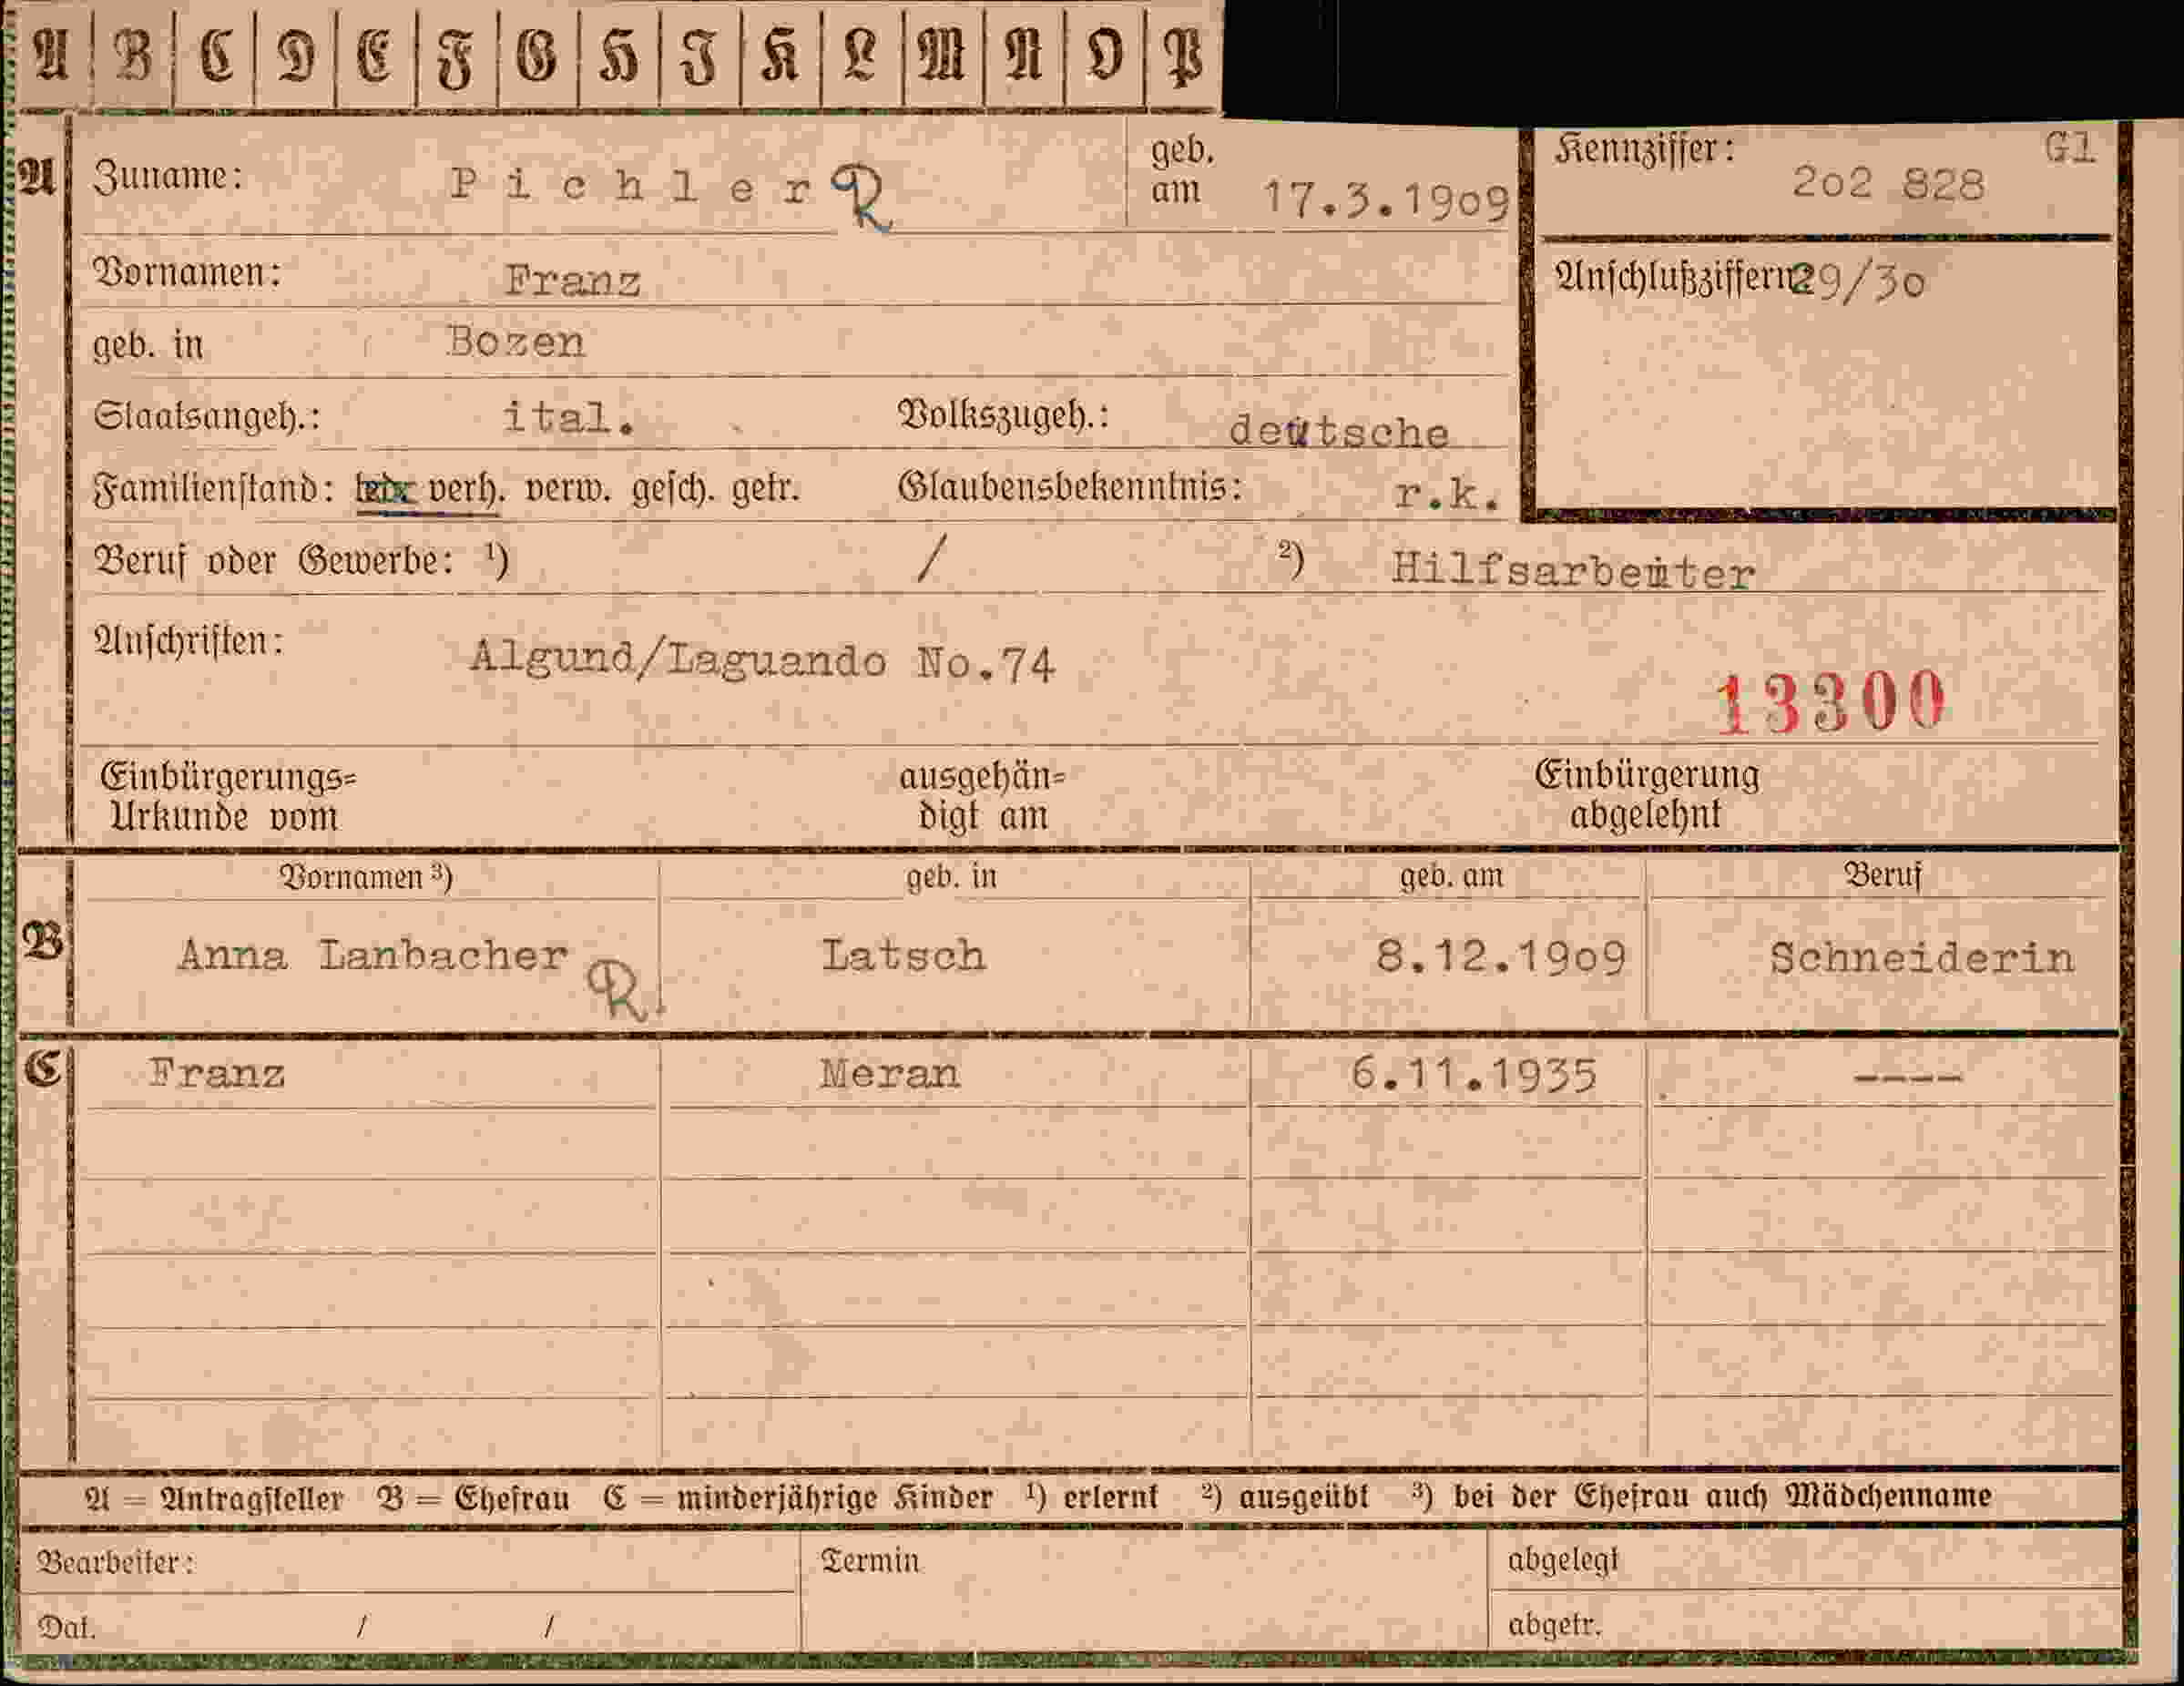 A B C D E F G H I K L M N O P
A Zuname: Pichler R geb. am 17.3.1909 Kennziffer: 202 828 Gl
Vornamen: Franz Anschlußziffern 29/30
geb. in Bozen
Staatsangeh.: ital. Volkszugeh.: deutsche
Familienstand: verh. verw. gesch. getr. Glaubensbekenntnis: r.k.
Beruf oder Gewerbe: ¹) / ²) Hilfsarbeiter
Anschriften: Algund/Laguando No.74
13300
Einbürgerungs= ausgehän= Einbürgerung
Urkunde vom digt am abgelehnt
Vornamen ³) geb. in geb. am Beruf
B Anna Lanbacher R. Latsch 8.12.1909 Schneiderin
C Franz Meran 6.11.1935 ----
A = Antragsteller B = Ehefrau C = minderjährige Kinder ¹) erlernt ²) ausgeübt ³) bei der Ehefrau auch Mädchenname
Bearbeiter: Termin abgelegt
Dat. / / abgetr.